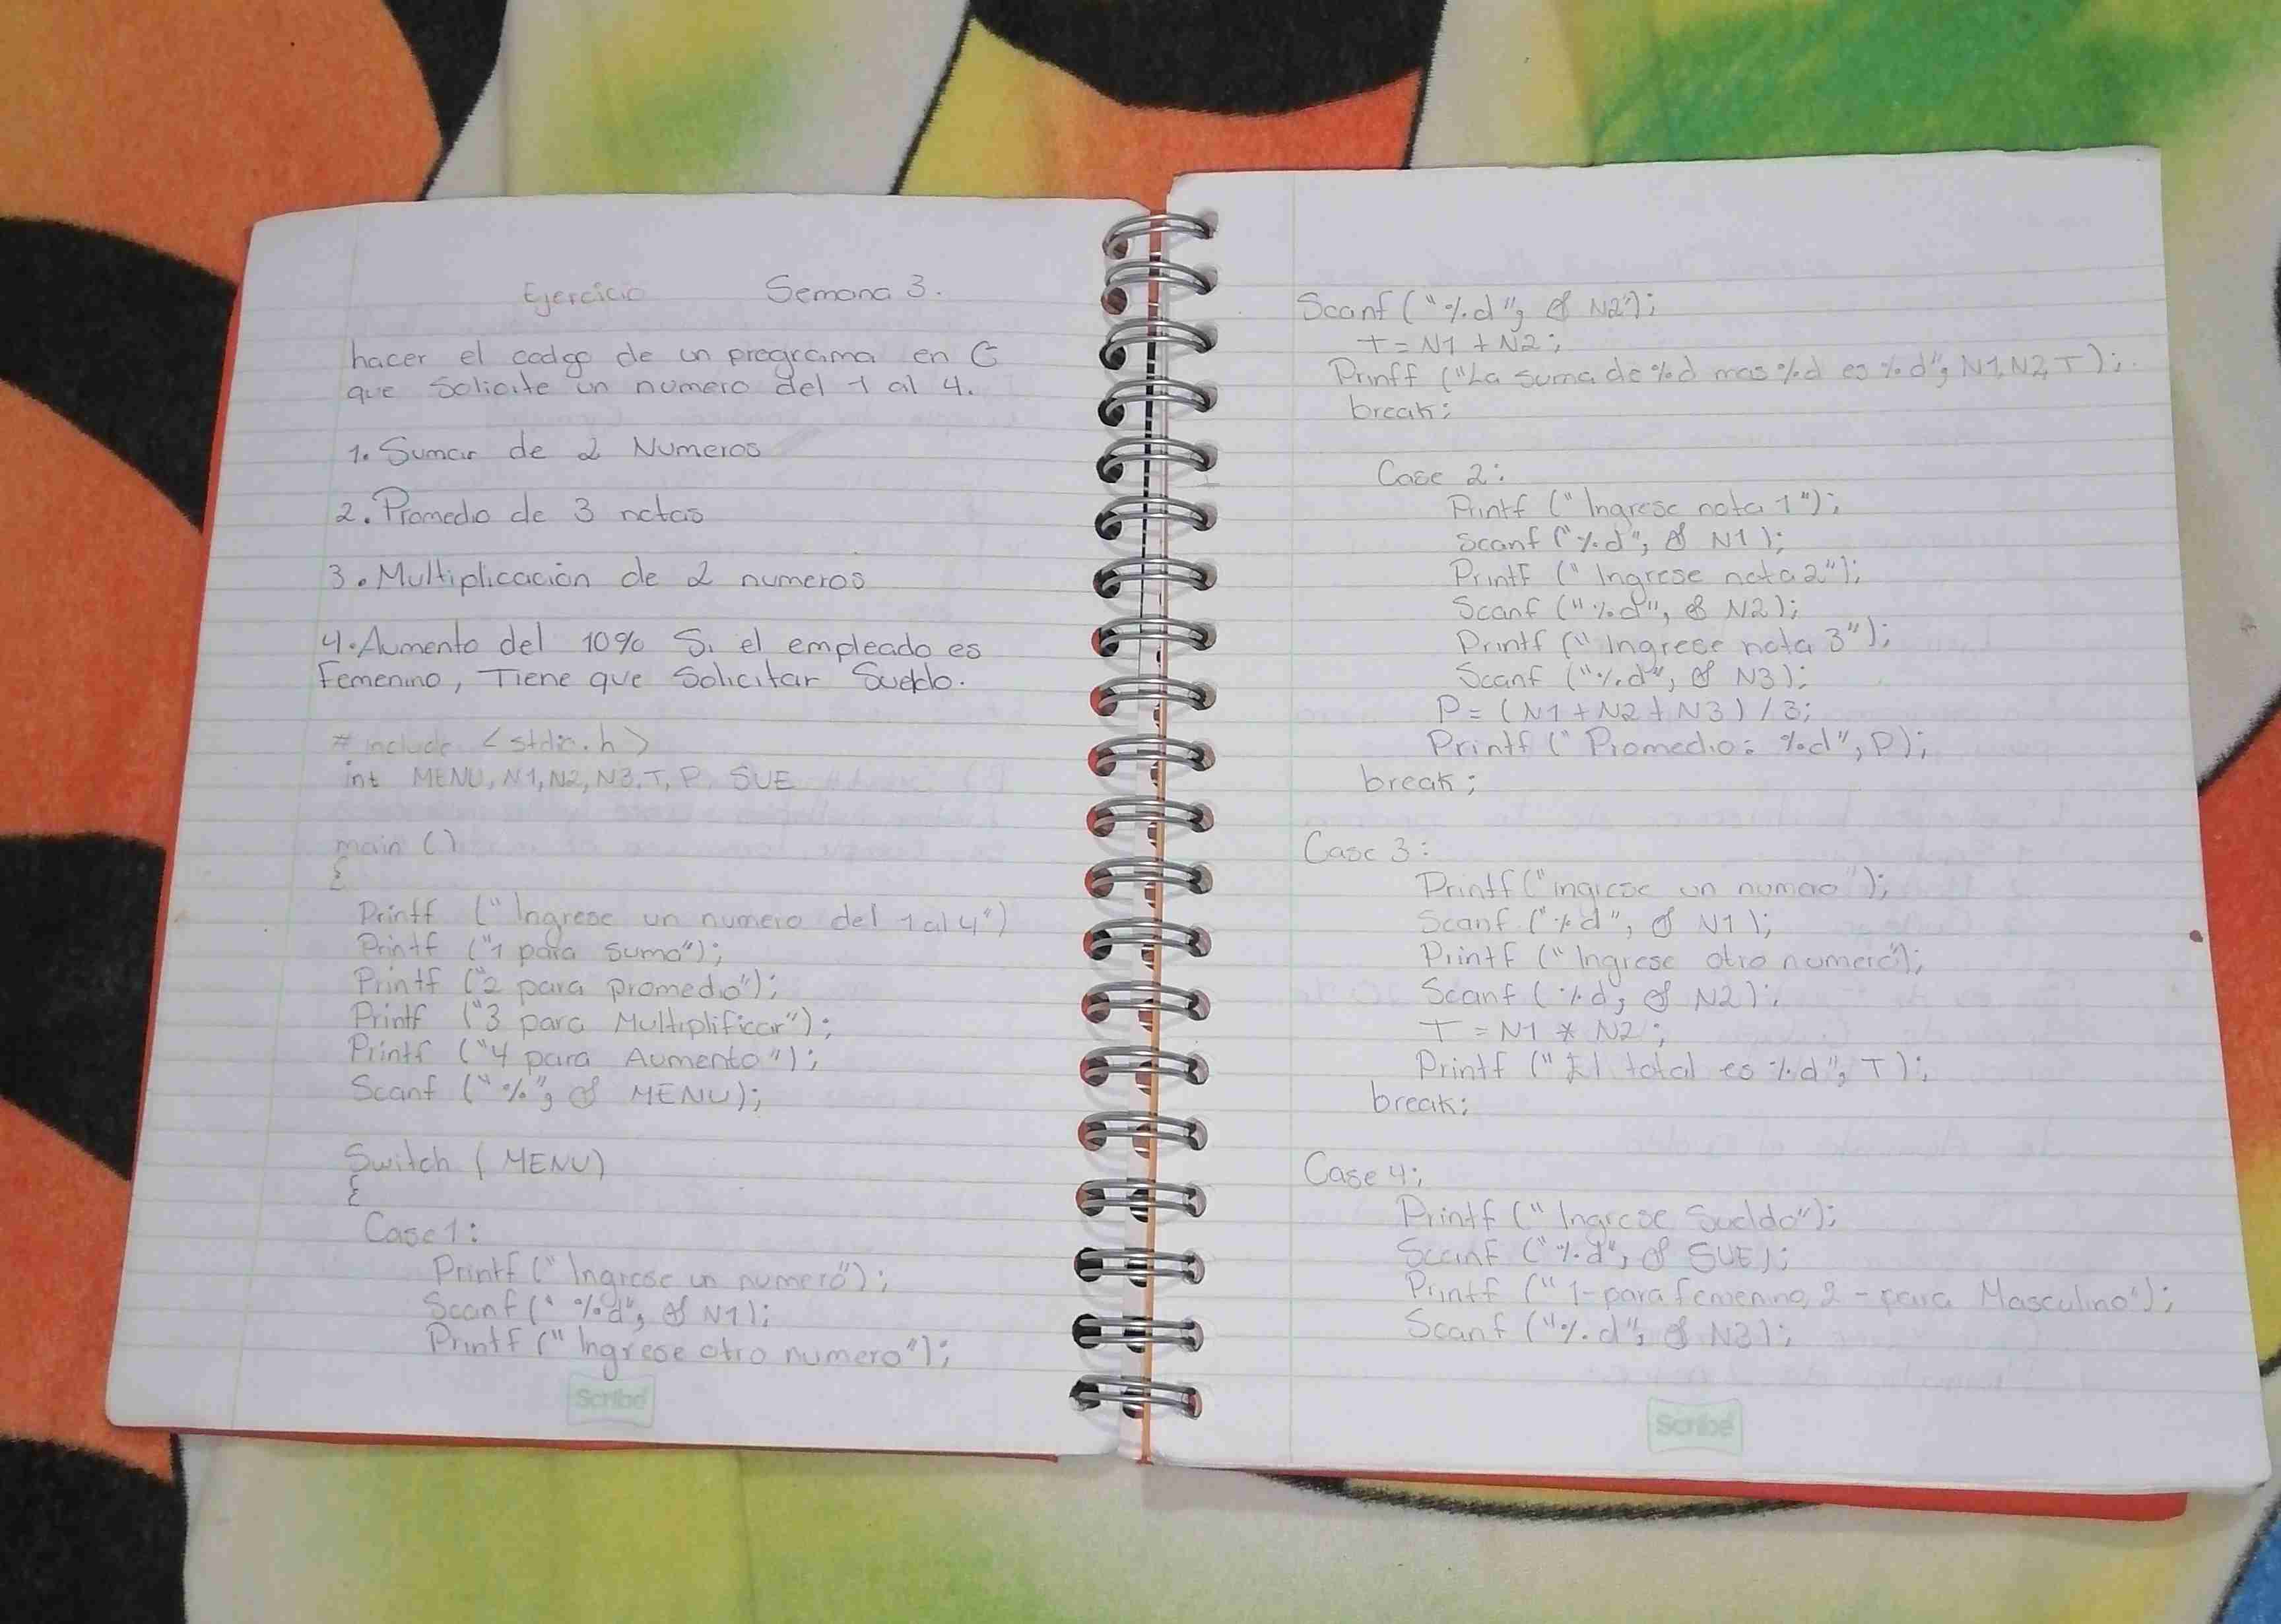 Ejercicio Semana 3.
hacer el codgo de un programa en C
que Solicite un numero del 1 al 4.
1. Sumar de 2 Numeros
2. Promedio de 3 notas
3. Multiplicación de 2 numeros
4. Aumento del 10% Si el empleado es
Femenino, Tiene que Solicitar Sueldo.
# include <stdio.h>
int MENU, N1, N2, N3, T, P, SUE
main ()
{
Printf ("Ingrese un numero del 1 al 4")
Printf ("1 para suma");
Printf ("2 para promedio");
Printf ("3 para Multiplificar");
Printf ("4 para Aumento");
Scanf ("%", & MENU);
Switch ( MENU)
{
Case 1:
Printf (" Ingrese un numero");
Scanf (" %d", & N1);
Printf (" Ingrese otro numero");
Scribe
Scanf ("%d", & N2");
T = N1 + N2;
Printf ("La suma de %d mas %d es %d", N1, N2, T);
break;
Case 2:
Printf ("Ingrese nota 1");
Scanf ("%d", & N1);
Printf (" Ingrese nota 2");
Scanf ("%d", & N2);
Printf (" Ingrese nota 3");
Scanf ("%d", & N3);
P = (N1 + N2 + N3) / 3;
Printf (" Promedio: %d", P);
break;
Case 3:
Printf ("ingrese un numero");
Scanf ("%d", & N1);
Printf (" Ingrese otro numero");
Scanf ( %d, & N2);
T = N1 * N2;
Printf ("El total es %d", T);
break;
Case 4;
Printf (" Ingrese Sueldo");
Scanf ("%d", & SUE);
Printf (" 1- para femenino, 2 - para Masculino");
Scanf ("%d", & N3);
Scribe